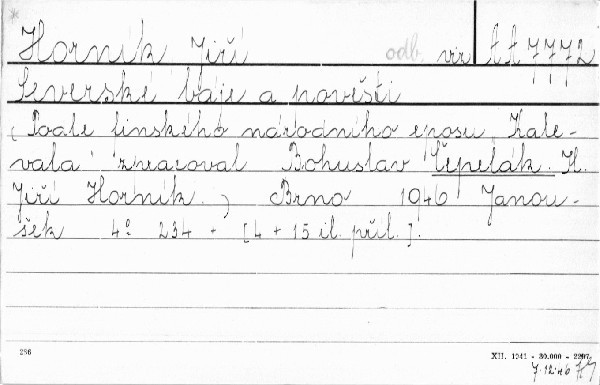 Horník Jiří odb. vir tt 7772
Severské báje a pověsti
(Podle finského národního eposu „Kale-
vala" zpracoval Bohuslav Čepelák. Il.
Jiří Horník.) Brno 1946 Janou-
šek 4° 234 + [4 + 15 il. příl.].
286 XII. 1941 - 30.000 - 2297
7.12.46